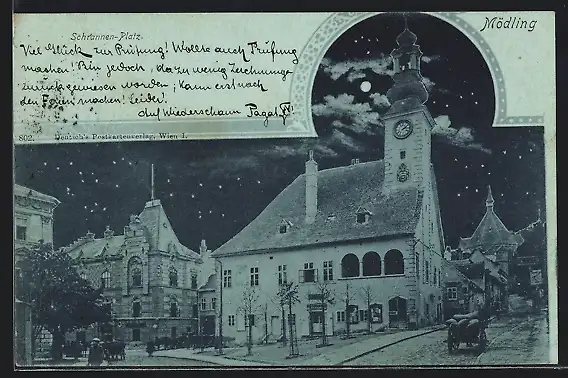 Schrannen-Platz.
Mödling
Viel Glück zur Prüfung! Wollte auch Prüfung
machen! Bin jedoch, da zu wenig Zeichnungen
zurückgewiesen worden; kann erst nach
den Ferien machen! Leider.
Auf Wiederschaun
802. Deutsch's Postkartenverlag, Wien I.